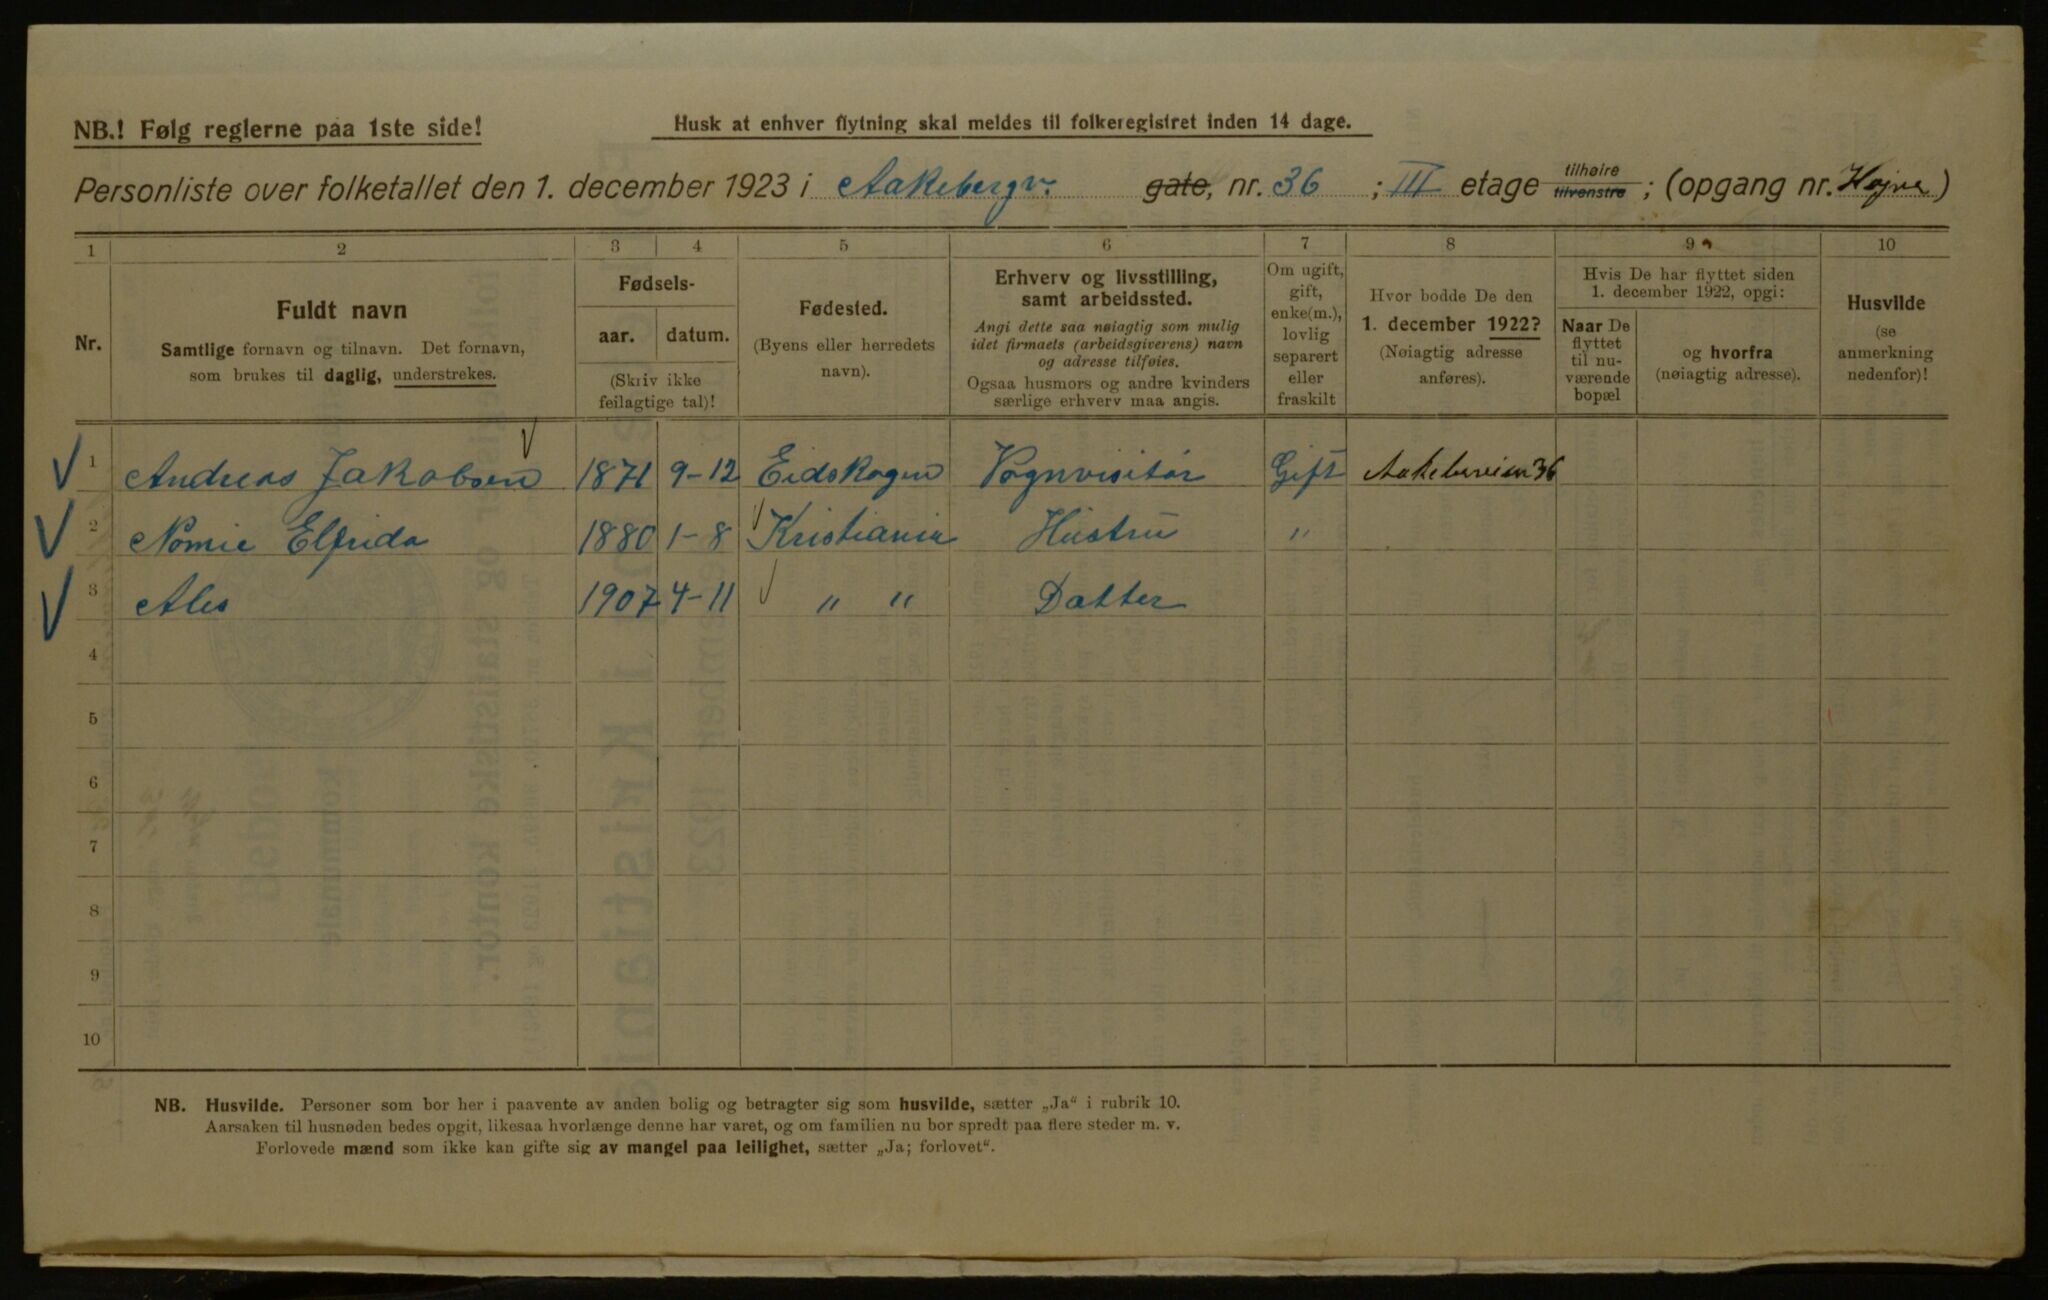 NB.! Følg reglerne paa 1ste side!
Husk at enhver flytning skal meldes til folkeregistret inden 14 dage.
Personliste over folketallet den 1. december 1923 i Aakebergv. gate, nr. 36 ; III etage tilhøire tilvenstre ; (opgang nr. Højre)
1 2 3 4 5 6 7 8 9 10
Nr.
Fuldt navn
Samtlige fornavn og tilnavn. Det fornavn,
som brukes til daglig, understrekes.
Fødsels-
aar. datum.
(Skriv ikke
feilagtige tal)!
Fødested.
(Byens eller herredets
navn).
Erhverv og livsstilling,
samt arbeidssted.
Angi dette saa nøiagtig som mulig
idet firmaets (arbeidsgiverens) navn
og adresse tilføies.
Ogsaa husmors og andre kvinders
særlige erhverv maa angis.
Om ugift,
gift,
enke(m.),
lovlig
separert
eller
fraskilt
Hvor bodde De den
1. december 1922?
(Nøiagtig adresse
anføres).
Hvis De har flyttet siden
1. december 1922, opgi:
Naar De
flyttet
til nu-
værende
bopæl
og hvorfra
(nøiagtig adresse).
Husvilde
(se
anmerkning
nedenfor)!
1 Andreas Jakobsen 1871 9-12 Eidskogen Vognvisitør Gift Aakeberveien 36
2 Nomie Elfrida 1880 1-8 Kristiania Hustru "
3 Ales 1907 4-11 " " Datter
4
5
6
7
8
9
10
NB. Husvilde. Personer som bor her i paavente av anden bolig og betragter sig som husvilde, sætter „Ja“ i rubrik 10.
Aarsaken til husnøden bedes opgit, likesaa hvorlænge denne har varet, og om familien nu bor spredt paa flere steder m. v.
Forlovede mænd som ikke kan gifte sig av mangel paa leilighet, sætter „Ja; forlovet“.